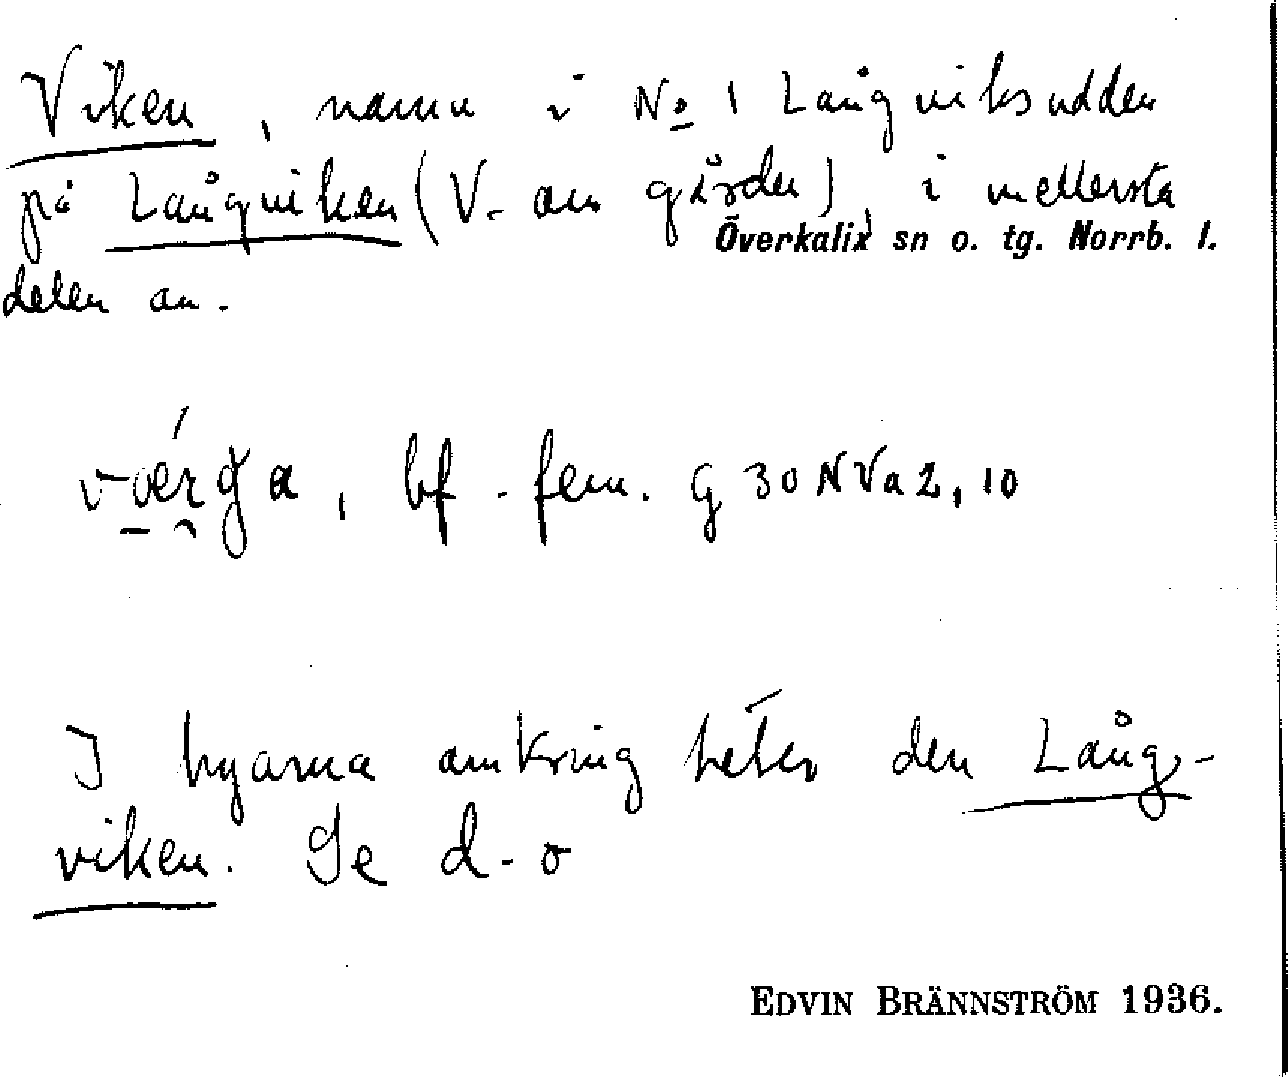 Viken, namn i No 1 Långviksudden
på Långviken (V. om gården), i mellersta
Överkalix sn o. tg. Norrb. l.
delen av.
bf. fem. G 30 N Va 2, 10
I byarna omkring heter den Lång-
viken. Se d-o
EDVIN BRÄNNSTRÖM 1936.